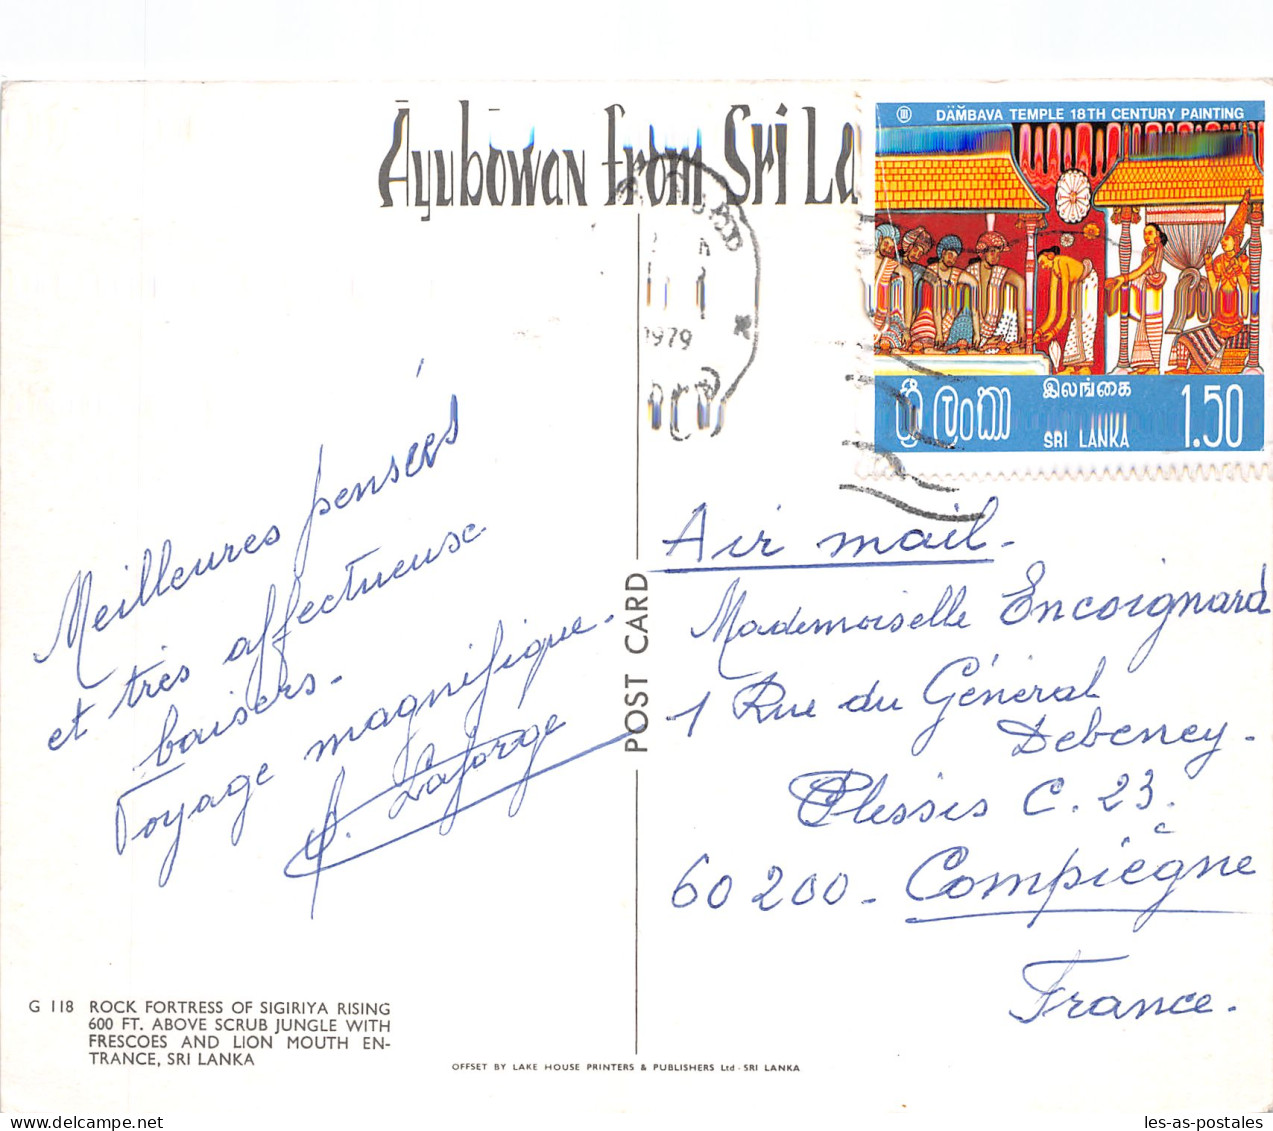 Ayubōwan from Sri La
III DÄMBAVA TEMPLE 18TH CENTURY PAINTING
ශ්‍රී ලංකා இலங்கை SRI LANKA 1.50
1979
Meilleures pensées
et très affectueuse
baisers.
Voyage magnifique.
A. Laforge
POST CARD
Air mail.
Mademoiselle Encoignard
1 Rue du Général
Debeney.
Plessis C. 23.
60200. Compiègne
France.
G 118 ROCK FORTRESS OF SIGIRIYA RISING
600 FT. ABOVE SCRUB JUNGLE WITH
FRESCOES AND LION MOUTH EN-
TRANCE, SRI LANKA
OFFSET BY LAKE HOUSE PRINTERS & PUBLISHERS Ltd - SRI LANKA
les-as-postales